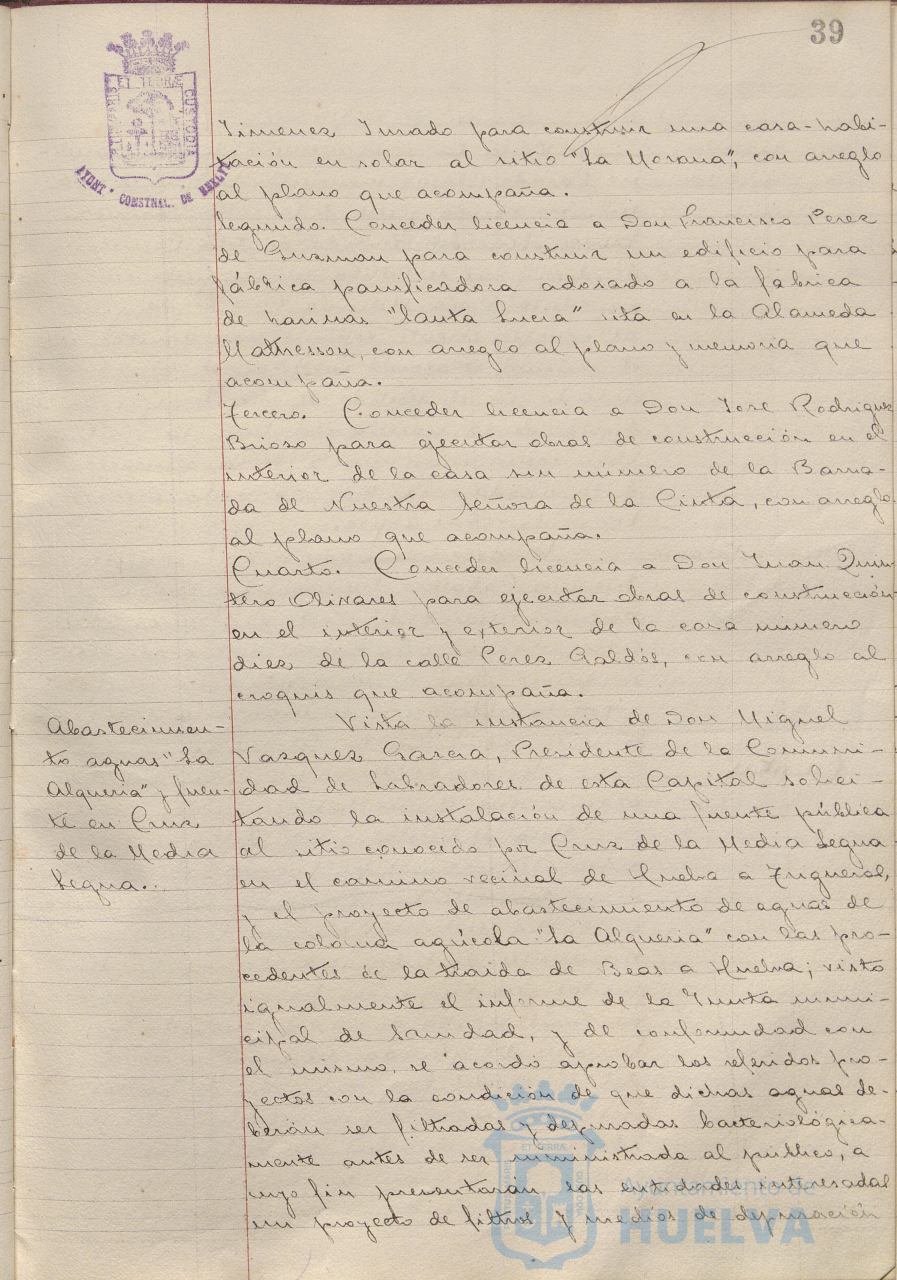 39
PORTUS MARIS ET TERRÆ CUSTODIA
AYONT. CONSTNAL. DE HUELVA
Jimenez Jurado para construir una casa-habi-
tación en solar al sitio "La Morana", con arreglo
al plano que acompaña.
Segundo. Conceder licencia a Don Francisco Perez
de Guzman para construir un edificio para
fábrica panificadora adosado a la fabrica
de harinas "Santa Lucia" sita en la Alameda
Mathesson, con arreglo al plano y memoria que
acompaña.
Tercero. Conceder licencia a Don Jose Rodriguez
Brioso para ejecutar obras de construcción en el
interior de la casa sin número de la Barria-
da de Nuestra Señora de la Cinta, con arreglo
al plano que acompaña.
Cuarto. Conceder licencia a Don Juan Quin-
tero Olivares para ejecutar obras de construcción
en el interior y exterior de la casa numero
diez de la calle Perez Galdós, con arreglo al
croquis que acompaña.
Abastecimien-
to aguas "La
Alqueria" y fuen-
te en Cruz
de la Media
Legua..
Vista la instancia de Don Miguel
Vazquez Garcia, Presidente de la Comuni-
dad de Labradores de esta Capital solici-
tando la instalación de una fuente pública
al sitio conocido por Cruz de la Media Legua
en el camino vecinal de Huelva a Trigueros,
y el proyecto de abastecimiento de aguas de
la colonia agúcola "La Alqueria" con las pro-
cedentes de la traida de Beas a Huelva; visto
igualmente el informe de la Junta muni-
cipal de Sanidad, y de conformidad con
el mismo, se acordó aprobar los referidos pro-
yectos con la condición de que dichas aguas de-
berán ser filtradas y depuradas bacteriológica-
mente antes de ser suministrada al público, a
cuyo fin presentarán las entidades interesadas
un proyecto de filtros y medios de depuración
Ayuntamiento de
HUELVA